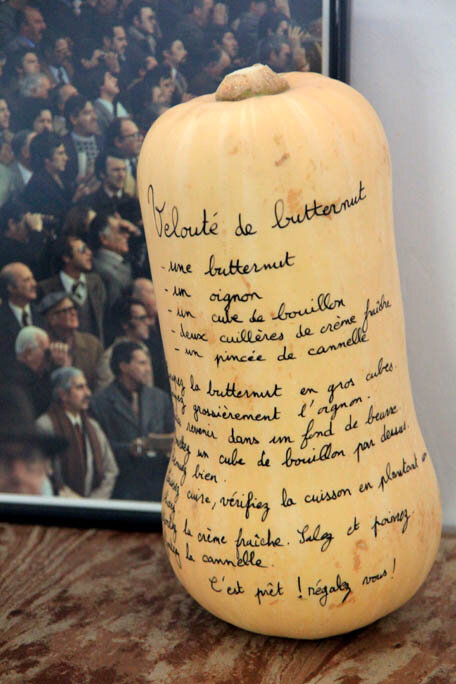 Velouté de butternut
- une butternut
- un oignon
- un cube de bouillon
- deux cuillères de crème fraîche
- un pincée de cannelle
la butternut en gros cubes.
grossièrement l'oignon.
revenir dans un fond de beurre.
un cube de bouillon par dessus.
bien.
cuire, vérifiez la cuisson en plantant
la crème fraîche. Salez et poivrez.
la cannelle.
C'est prêt ! régalez vous !